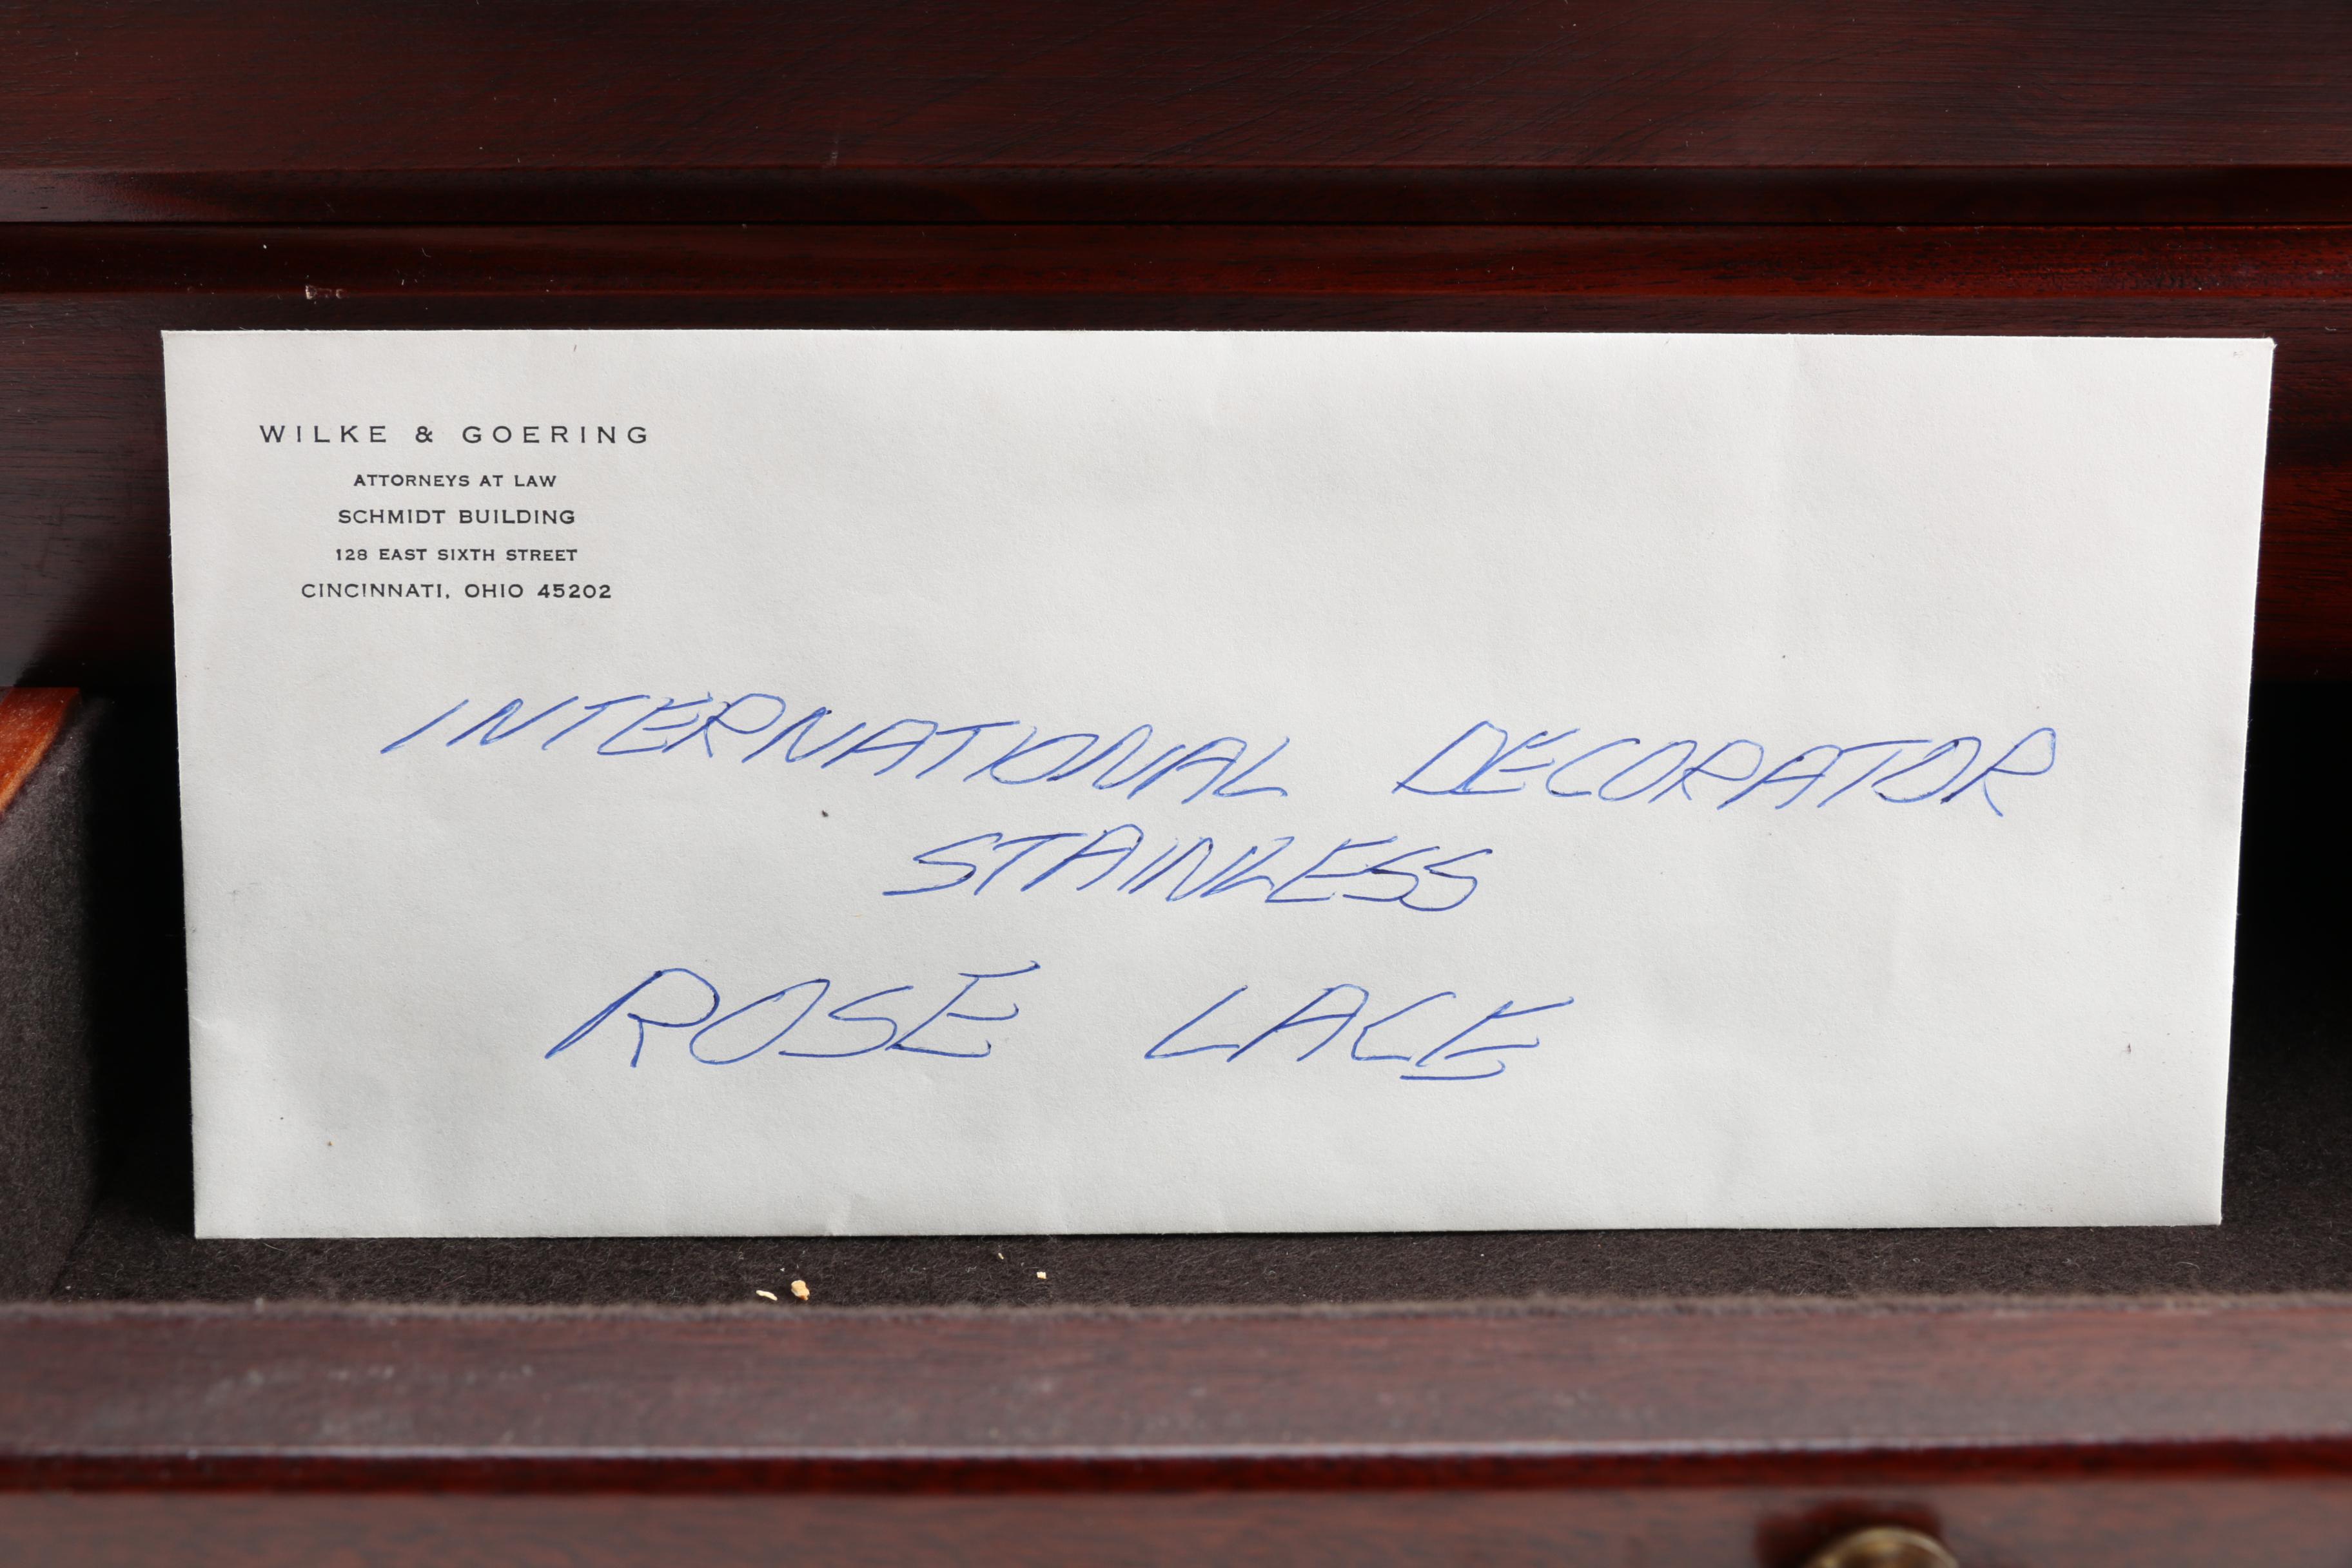 WILKE & GOERING
ATTORNEYS AT LAW
SCHMIDT BUILDING
128 EAST SIXTH STREET
CINCINNATI, OHIO 45202
INTERNATIONAL DECORATOR
STAINLESS
ROSE LACE